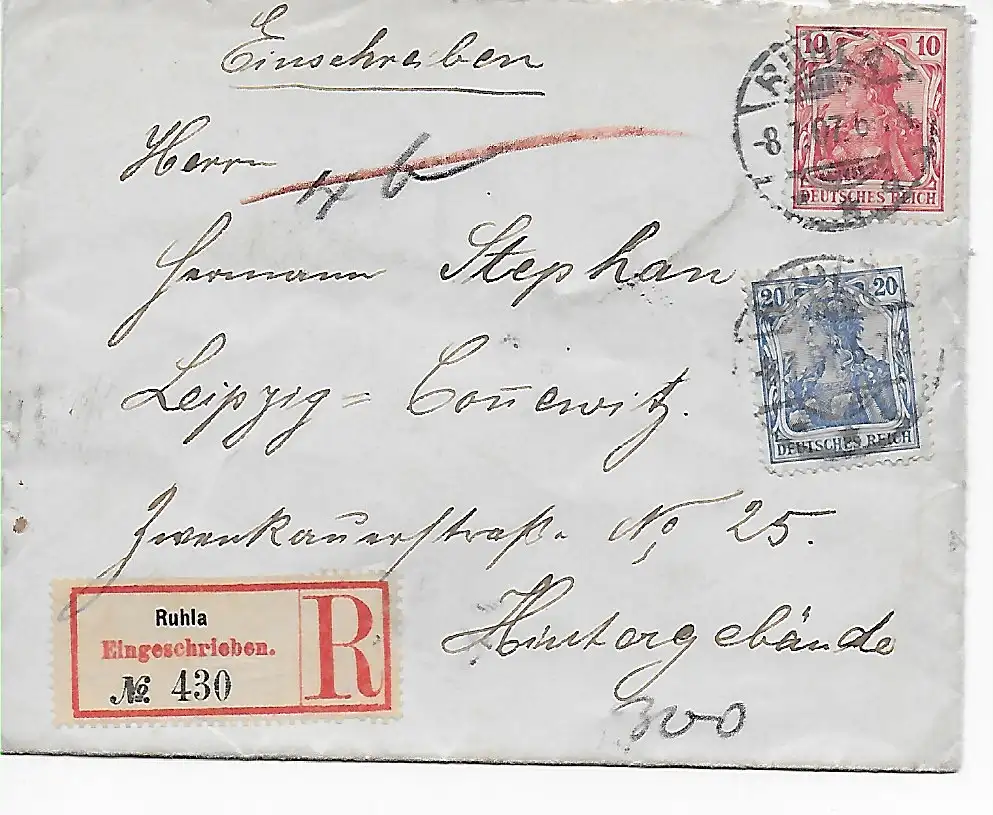 Einschreiben
Herrn
Hermann Stephan
Leipzig = Con̄ewitz.
Zwenkauerstraße No 25.
Hintergebände
300
10 10
DEUTSCHES REICH
RUHLA
20 20
DEUTSCHES REICH
Ruhla
Eingeschrieben.
№ 430
R